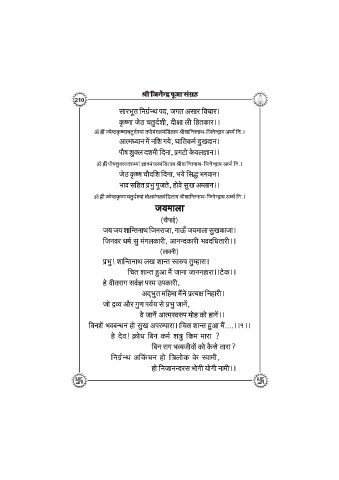 श्री जिनेन्द्र पूजा संग्रह
210
सारभूत निर्ग्रन्थ पद, जगत असार विचार।
कृष्णा जेठ चतुर्दशी, दीक्षा ली हितकार।।
ॐ ह्रीं ज्येष्ठकृष्णचतुर्दश्यां तपोमंगलमंडिताय श्रीशान्तिनाथ-जिनेन्द्राय अर्घ्यं नि.।
आत्मध्यान में नशि गये, घातिकर्म दुखदान।
पौष शुक्ल दशमी दिना, प्रगटो केवलज्ञान।।
ॐ ह्रीं पौषशुक्लदशम्यां ज्ञानमंगलमंडिताय श्रीशान्तिनाथ-जिनेन्द्राय अर्घ्यं नि.।
जेठ कृष्ण चौदशि दिना, भये सिद्ध भगवान।
भाव सहित प्रभु पूजते, होवे सुख अम्लान।।
ॐ ह्रीं ज्येष्ठकृष्णचतुर्दश्यां मोक्षमंगलमंडिताय श्रीशान्तिनाथ-जिनेन्द्राय अर्घ्यं नि.।
जयमाला
(चौपाई)
जय जय शान्तिनाथ जिनराजा, गाऊँ जयमाला सुखकाजा।
जिनवर धर्म सु मंगलकारी, आनन्दकारी भवदधितारी।।
(लावनी)
प्रभु! शान्तिनाथ लख शान्त स्वरूप तुम्हारा।
चित शान्त हुआ मैं जाना जाननहारा।।टेक।।
हे वीतराग सर्वज्ञ परम उपकारी,
अद्भुत महिमा मैंने प्रत्यक्ष निहारी।
जो द्रव्य और गुण पर्यय से प्रभु जानें,
वे जानें आत्मस्वरूप मोह को हानें।।
विनशें भवबन्धन हो सुख अपरम्पारा।।चित शान्त हुआ मैं....।।१।।
हे देव! क्रोध बिन कर्म शत्रु किम मारा ?
बिन राग भव्यजीवों को कैसे तारा?
निर्ग्रन्थ अकिंचन हो त्रिलोक के स्वामी,
हो निजानन्दरस भोगी योगी नामी।।